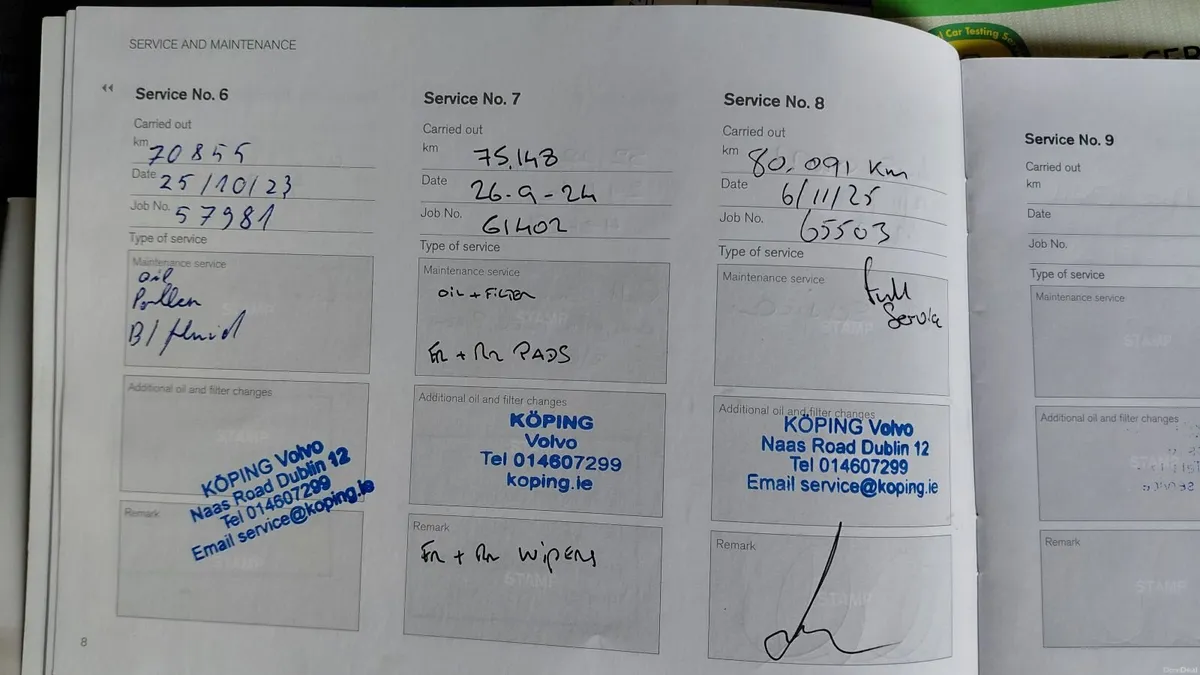 SERVICE AND MAINTENANCE
Service No. 6
Carried out
km 70855
Date 25/10/23
Job No. 57981
Type of service
Maintenance service
oil
Pollen
B/fluid
Additional oil and filter changes
STAMP
KÖPING Volvo
Naas Road Dublin 12
Tel 014607299
Email service@koping.ie
Remark
STAMP
8
Service No. 7
Carried out
km 75,148
Date 26-9-24
Job No. 61402
Type of service
Maintenance service
OIL + FILTER
STAMP
Fr + Rr PADS
Additional oil and filter changes
KÖPING
Volvo
Tel 014607299
koping.ie
Remark
Fr + Rr WIPERS
STAMP
Service No. 8
Carried out
km 80.091 Km
Date 6/11/25
Job No. 65503
Type of service
Maintenance service
Full
Service
STAMP
Additional oil and filter changes
KÖPING Volvo
Naas Road Dublin 12
Tel 014607299
Email service@koping.ie
Remark
STAMP
Service No. 9
Carried out
km
Date
Job No.
Type of service
Maintenance service
STAMP
Additional oil and filter changes
STAMP
Remark
STAMP
Car Testing
DoneDeal